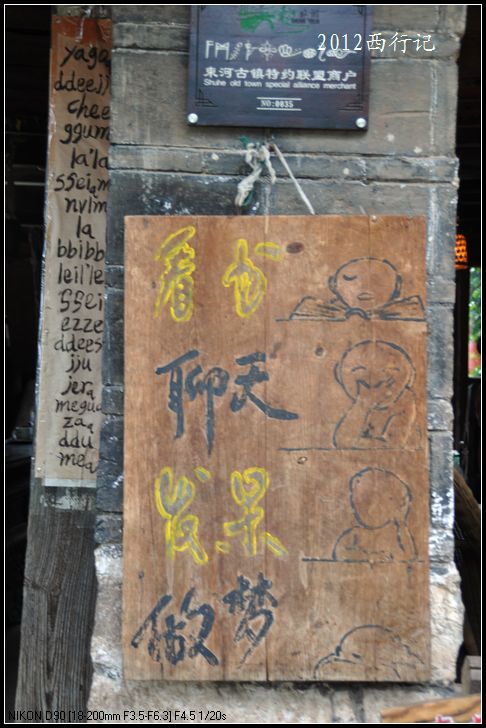 2012西行记
束河古镇特约联盟商户
Shuhe old town special alliance merchant
NO:0035
看书
聊天
发呆
做梦
yaga
ddeejj
chee
ggum
la'la
ssei
nvlm
la
bbibb
leil'le
ssei
ezze
ddees
jju
jer
megua
za
ddu
mea
NIKON D90 [18-200mm F3.5-F6.3] F4.5 1/20s